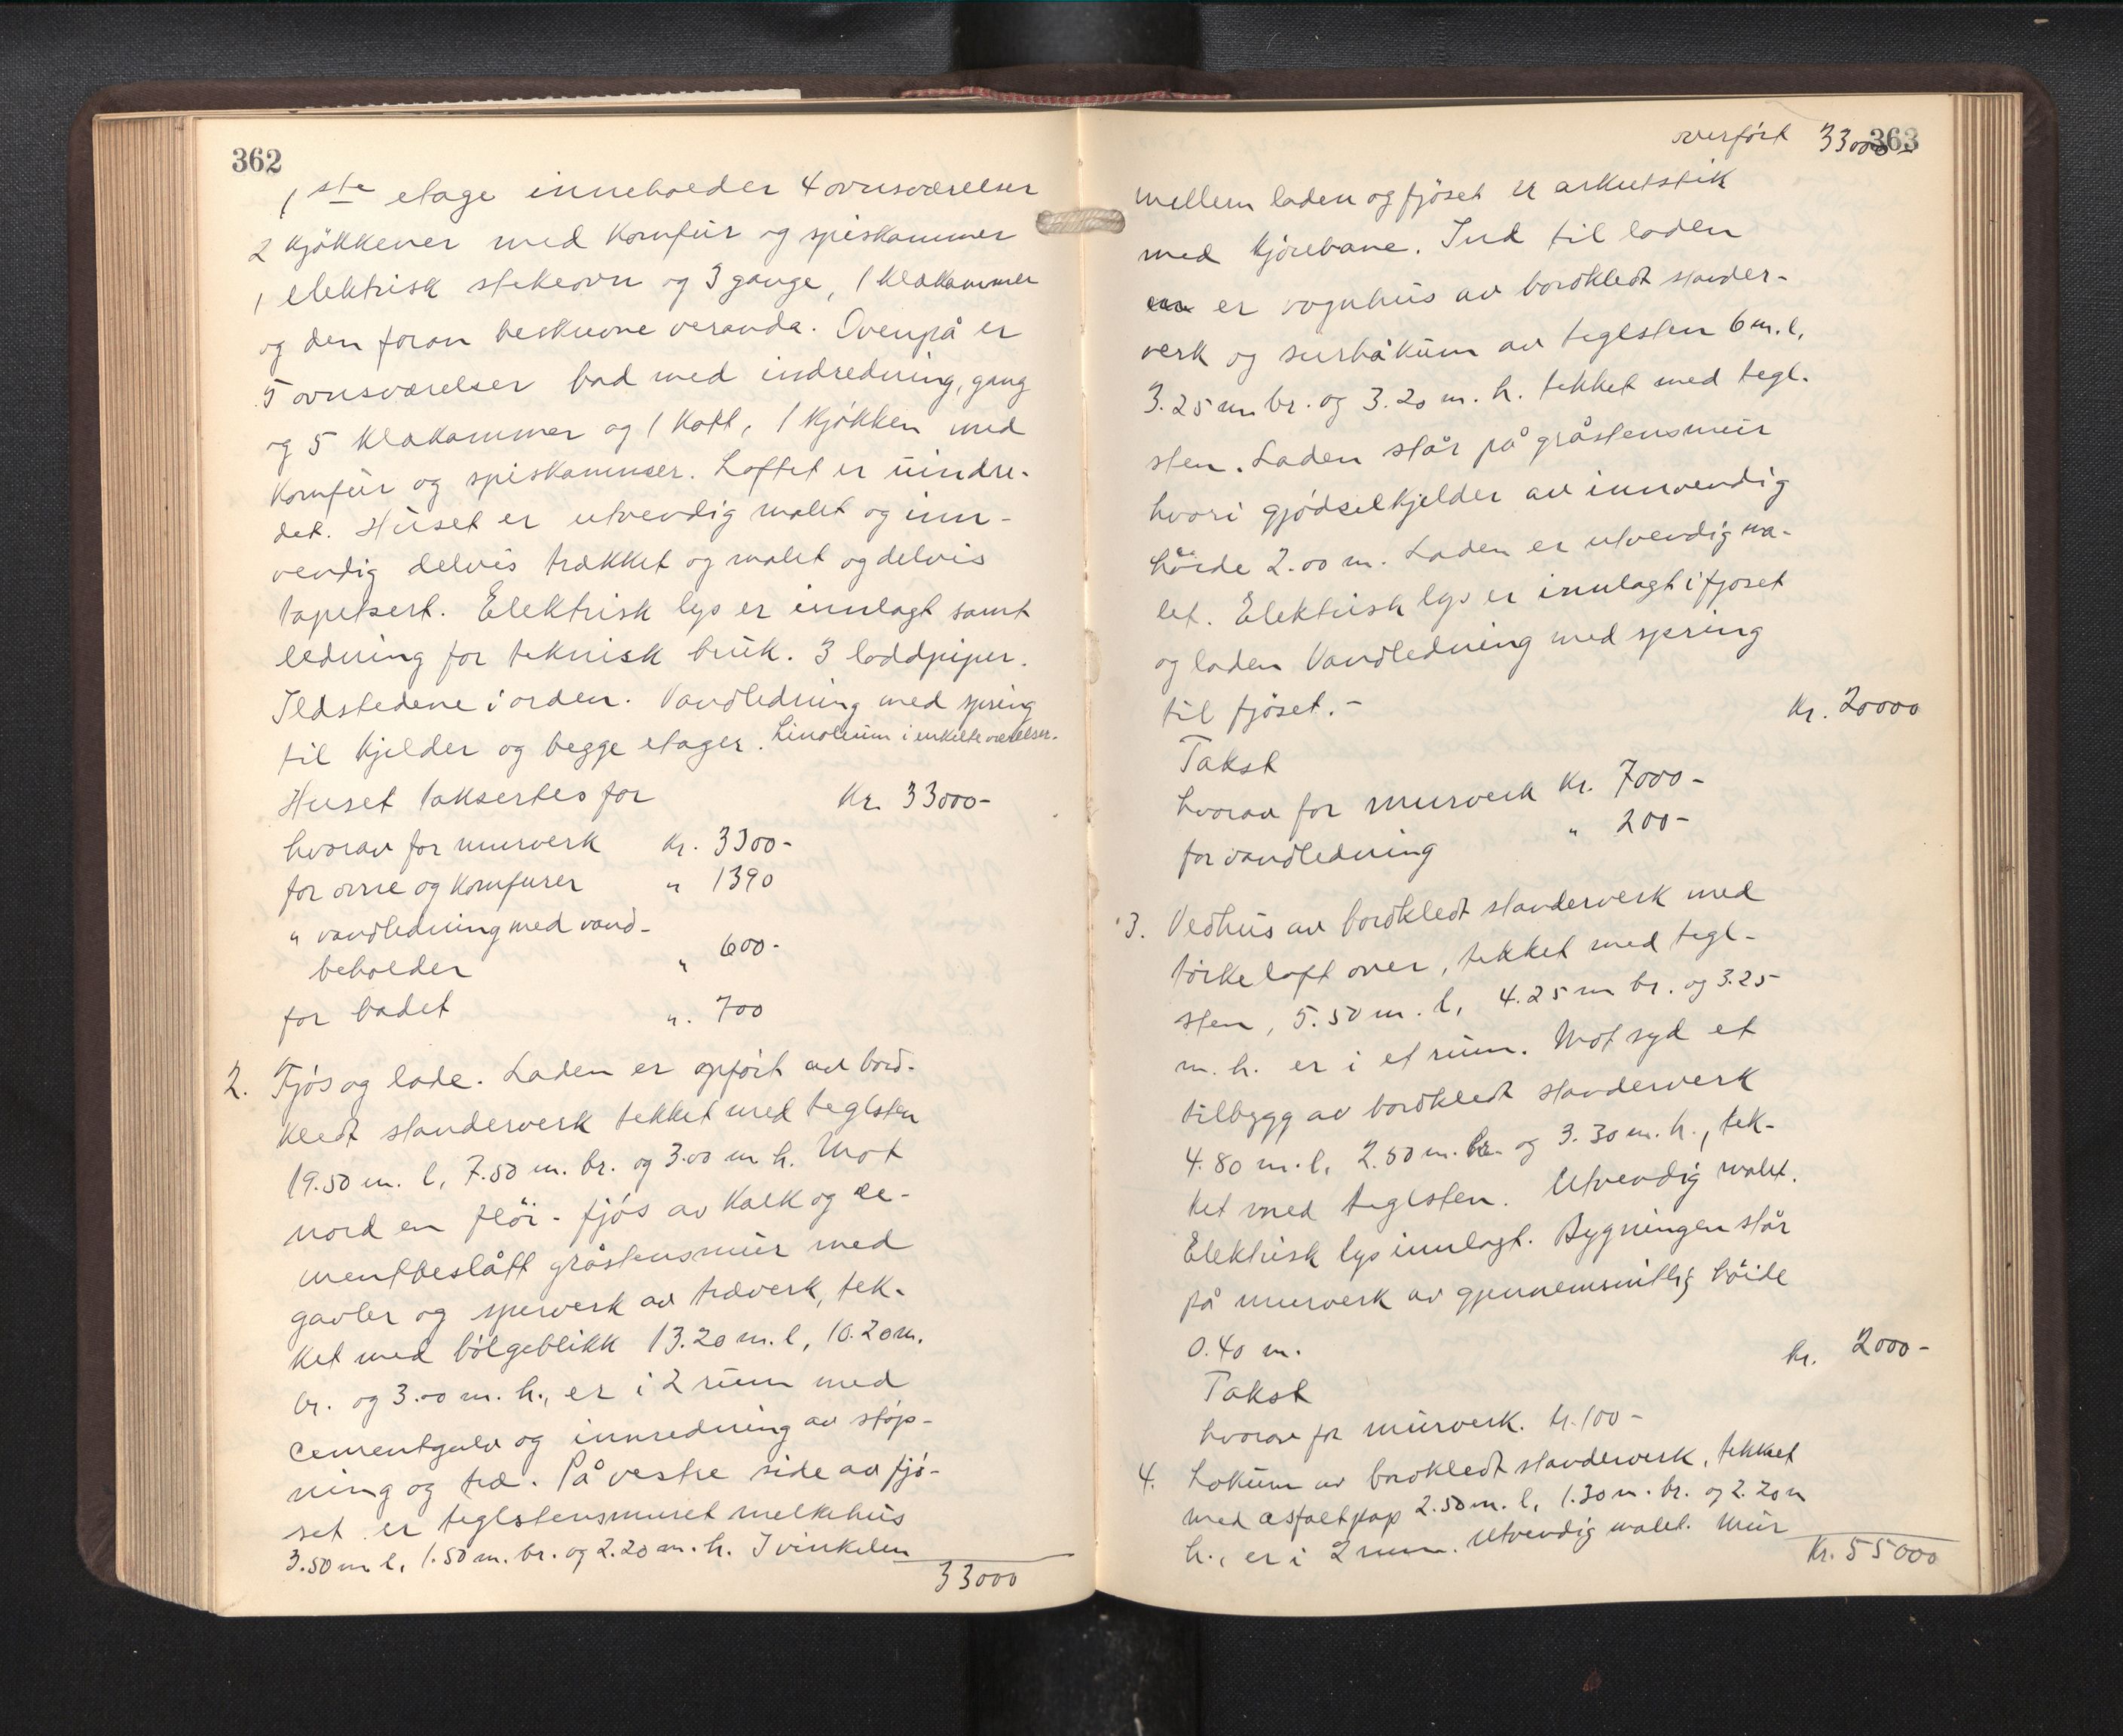 362
1ste etage inneholder 4 ovnsværelser
2 kjøkkener med komfur og spiskammer
1 elektrisk stekeovn og 3 gange, 1 klækammer
og den foran beskrevne veranda. Ovenpå er
5 ovnsværelser bad med indredning, gang
og 5 klækammer og 1 kott, 1 kjøkken med
komfur og spiskammer. Loftet er uindre-
det. Huset er utvendig malet og inn-
vendig delvis trækket og malet og delvis
tapetsert. Elektrisk lys er innlagt samt
ledning for teknisk bruk. 3 loddpiper.
Ildstedene i orden. Vandledning med spring
til kjelder og begge etager. Linoleum i enkelte værelser.
Huset taksertes for Kr. 33000-
hvorav for murverk Kr. 3300-
for ovne og komfurer " 1390
" vandledning med vand-
beholder " 600-
for badet ". 700
2. Fjøs og lade. Laden er opført av bord-
kledt standerverk tekket med teglsten
19.50 m. l, 7.50 m. br. og 3.00 m h. Mot
nord en fløi - fjøs av kalk og ce-
mentbeslått gråstensmur med
gavler og sperverk av treverk, tek-
ket med bølgeblikk 13.20 m. l, 10.20 m.
br. og 3.00 m. h., er i 2 rum med
cementgulv og innredning av støp-
ning og træ. På vestre side av fjø-
set er teglstensmuret melkehus
3.50 m l, 1.50 m. br. og 2.20 m. h. I vinkelen
33000
363
overført 33000-
mellem laden og fjøset er
med kjørebane. Ind til laden
er vognhus av bordkledt stander-
verk og surhåkum av teglsten 6 m. l,
3.25 m br. og 3.20 m. h. tekket med tegl-
sten. Laden står på gråstensmur
hvori gjødselkjelder av innvendig
høide 2.00 m. Laden er utvendig ma-
let. Elektrisk lys er innlagt i fjøset
og laden Vandledning med spring
til fjøset.-
Takst Kr. 20000
hvorav for murverk Kr. 7000-
for vandledning " 200-
3. Vedhus av bordkledt standerverk med
tørkeloft over, tekket med tegl-
sten, 5.50 m. l, 4.25 m br. og 3.25
m. h. er i et rum. Mot syd et
tilbygg av bordkledt standerverk
4.80 m. l, 2.50 m. br. og 3.30 m. h., tek-
ket med teglsten. Utvendig malt.
Elektrisk lys innlagt. Bygningen står
på murverk av gjennemsnitlig høide
0.40 m.
Takst kr. 2000-
hvorav for murverk. kr. 100-
4. Lokum av bordkledt standerverk, tekket
med asfaltpap 2.50 m. l, 1.30 m. br. og 2.20 m
h., er i 2 rum. Utvendig malet. Mur
Kr. 55000